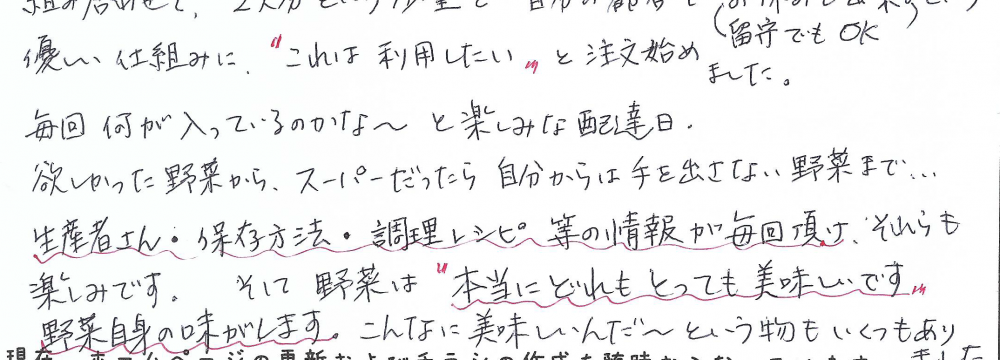 優しい仕組みに、"これは利用したい〟と注文始め
(留守でもOK)
ました。
毎回何が入っているのかな〜と楽しみな配達日.
欲しかった野菜から、スーパーだったら自分からは手を出さない野菜まで...
生産者さん・保存方法・調理レシピ等の情報が毎回頂け、それらも
楽しみです。そして野菜は"本当にどれもとっても美味しいです〟
野菜自身の味がします。こんなに美味しいんだ〜という物もいくつもあり
ました